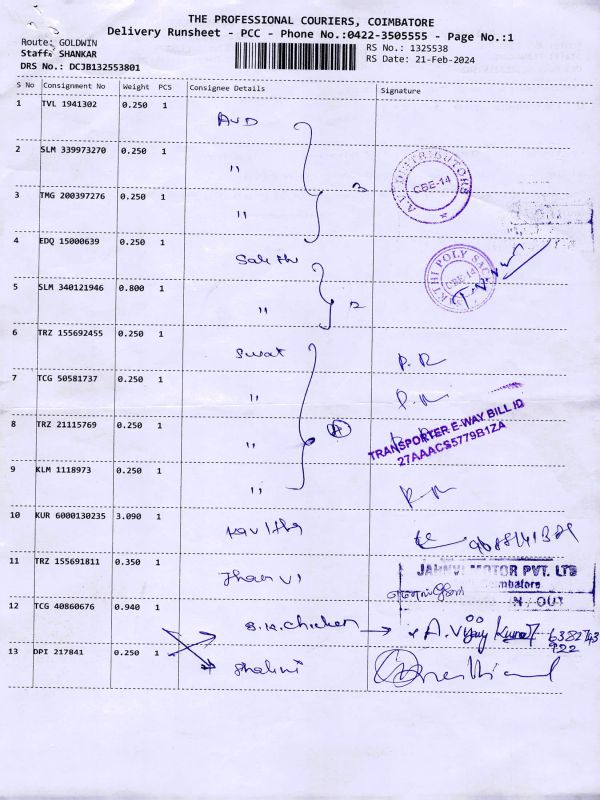 THE PROFESSIONAL COURIERS, COIMBATORE
Delivery Runsheet - PCC - Phone No.:0422-3505555 - Page No.:1
Route: GOLDWIN
Staff: SHANKAR
DRS No.: DCJB132553801
RS No.: 1325538
RS Date: 21-Feb-2024
S No Consignment No Weight PCS Consignee Details Signature
1 TVL 1941302 0.250 1 AVD
2 SLM 339973270 0.250 1 "
3 TMG 200397276 0.250 1 "
3
DISTRIBUTORS
CBE-14
4 EDQ 15000639 0.250 1 Sakthi
5 SLM 340121946 0.800 1 "
2
KTHI POLY SAC
CBE-14
6 TRZ 155692455 0.250 1 Swat P.R
7 TCG 50581737 0.250 1 "
8 TRZ 21115769 0.250 1 "
4
TRANSPORTER E-WAY BILL ID
27AAACS5779B1ZA
9 KLM 1118973 0.250 1 "
10 KUR 6000130235 3.090 1 Kavitha
11 TRZ 155691811 0.350 1
MOTOR PVT. LTD
Coimbatore
IN / OUT
12 TCG 40860676 0.940 1 S.K.Chicken A. Vijay Kumar
13 DPI 217841 0.250 1 Shalini